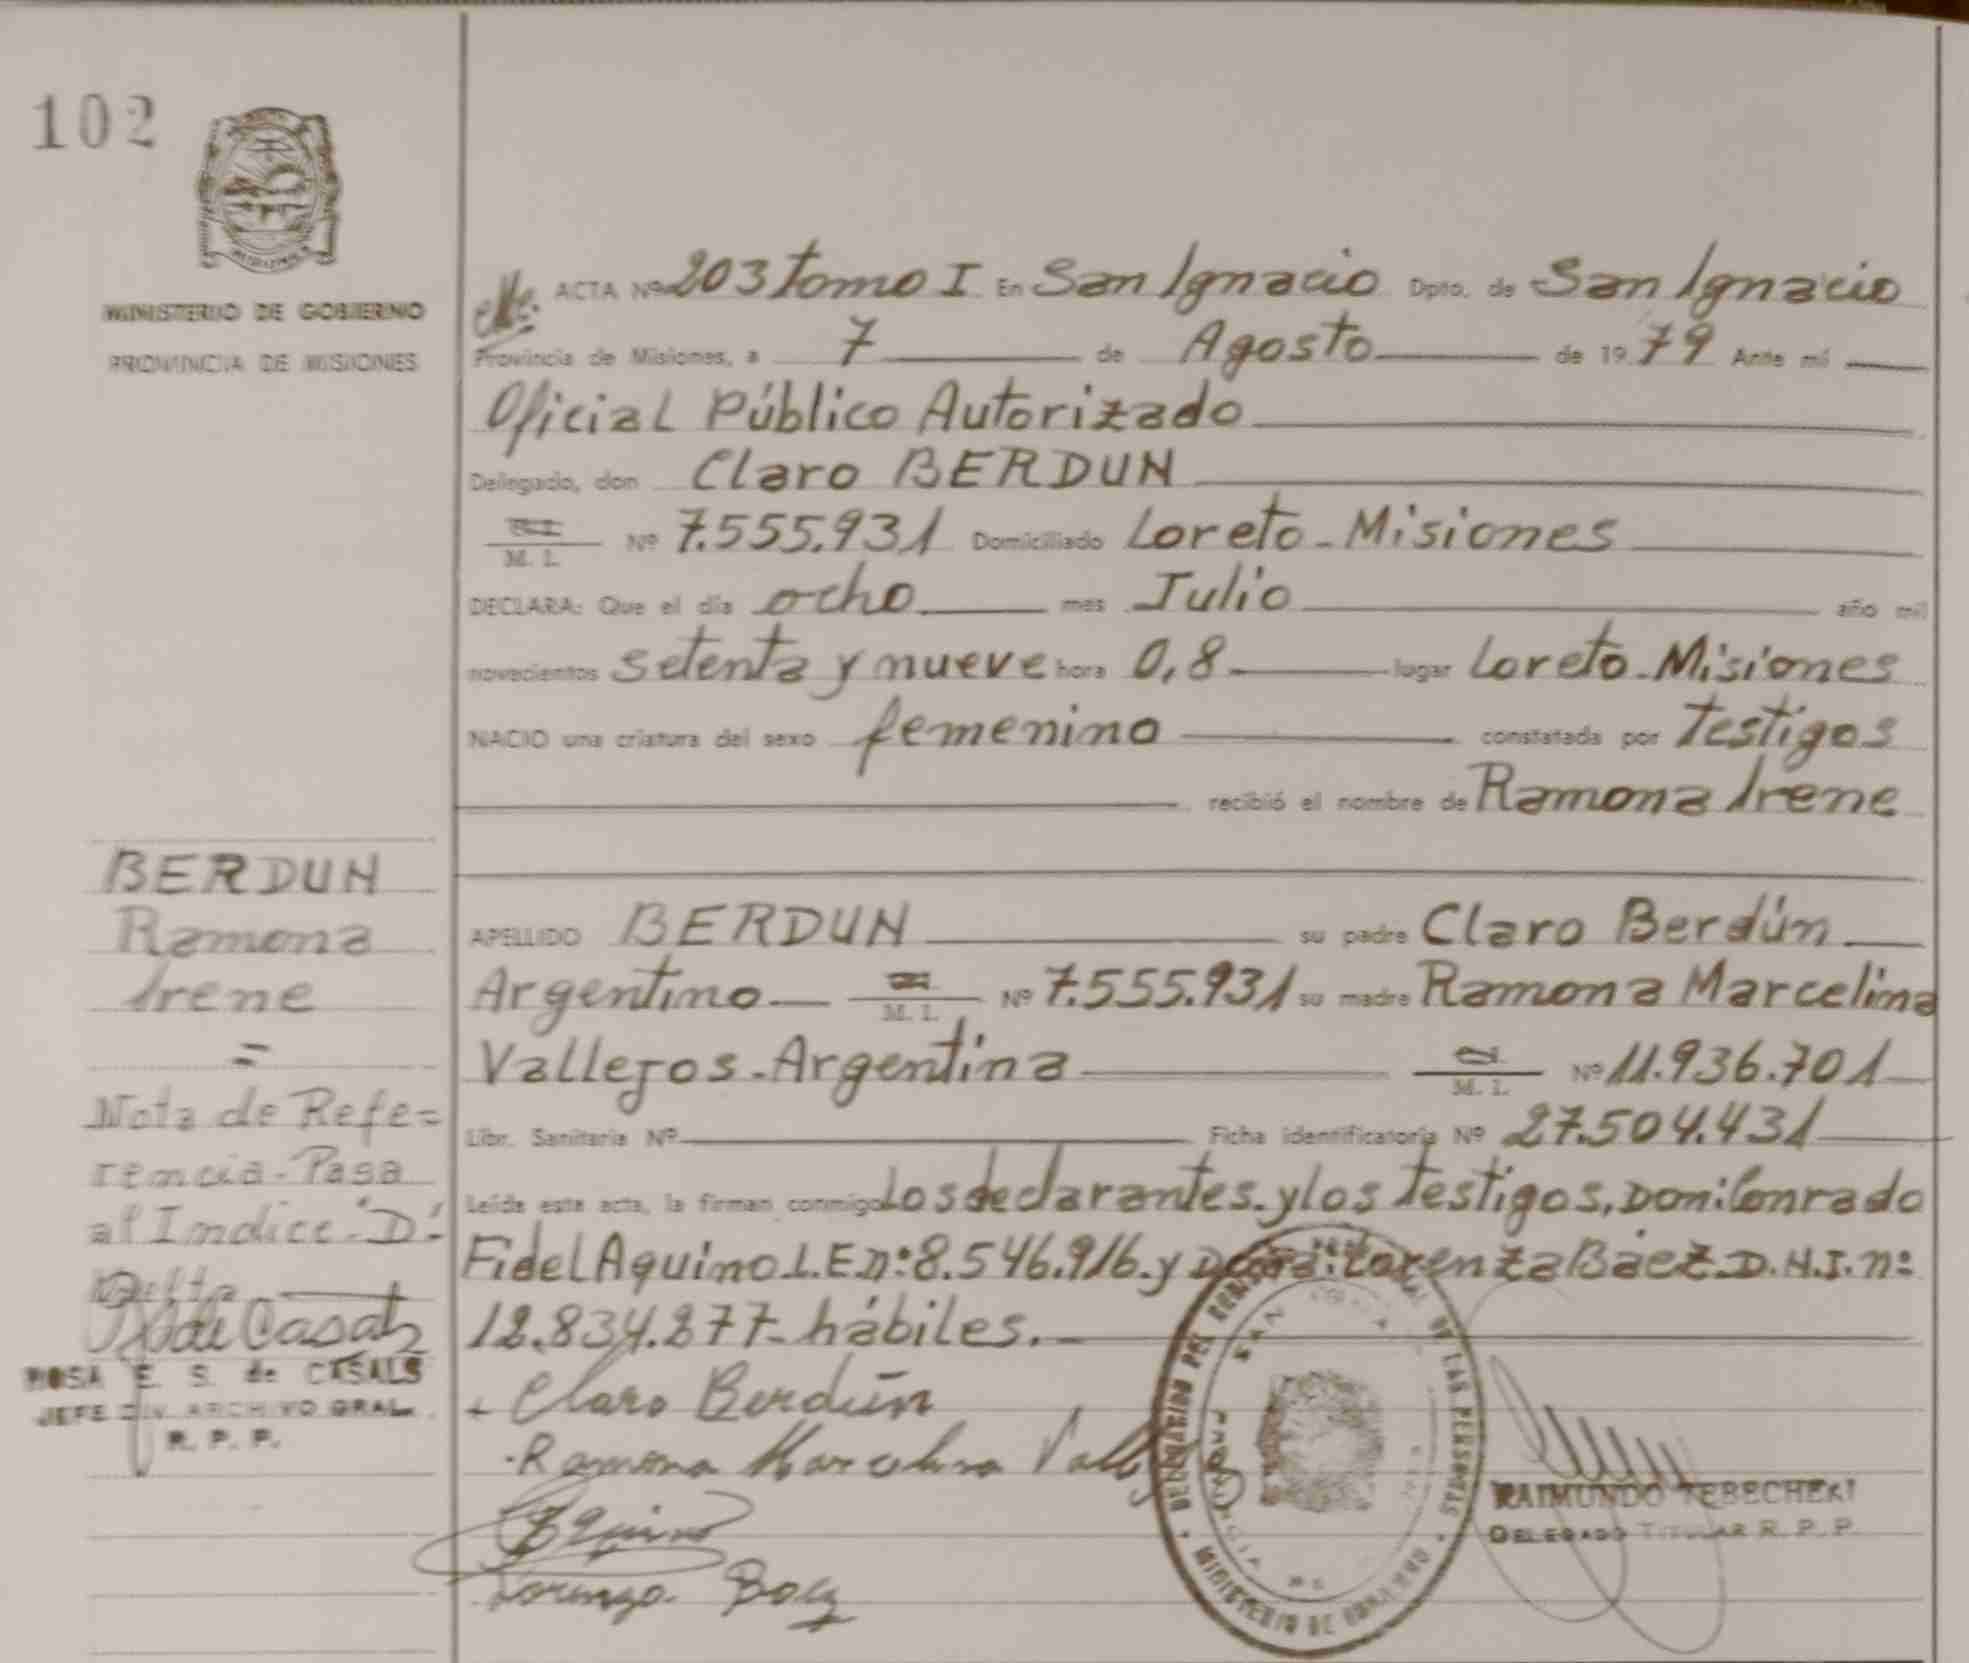 102
MINISTERIO DE GOBIERNO
PROVINCIA DE MISIONES
ACTA Nº 203 tomo I En San Ignacio Dpto. de San Ignacio
Provincia de Misiones, a 7 de Agosto de 1979 Ante mí
Oficial Público Autorizado
Delegado, don Claro BERDUN
M. I. Nº 7.555.931 Domiciliado Loreto - Misiones
DECLARA: Que el día ocho mes Julio año mil
novecientos setenta y nueve hora 0,8 lugar Loreto - Misiones
NACIO una criatura del sexo femenino constatada por testigos
recibió el nombre de Ramona Irene
APELLIDO BERDUN su padre Claro Berdún
Argentino M. I. Nº 7.555.931 su madre Ramona Marcelina
Vallejos - Argentina M. I. Nº 11.936.701
Libr. Sanitaria Nº Ficha identificatoria Nº 27.504.431
Leída este acta, la firman conmigo Los declarantes. y los testigos, Don: Conrado
Fidel Aquino L.E.nº: 8.546.916. y Doña: Lorenza Báez D.N.I.nº:
12.834.277 - hábiles. -
Claro Berdún
Ramona Marcelina
Aquino
Lorenza Baez
BERDUN
Ramona
Irene
=
Nota de Refe=
rencia - Pasa
al Indice "D"
de Casals
ROSA E. S. de CASALS
JEFE DIV. ARCHIVO GRAL.
R. P. P.
DE LAS PERSONAS
MINISTERIO DE GOBIERNO
SAN
PROVINCIA DE
RAIMUNDO TEBECHERI
DELEGADO TITULAR R. P. P.